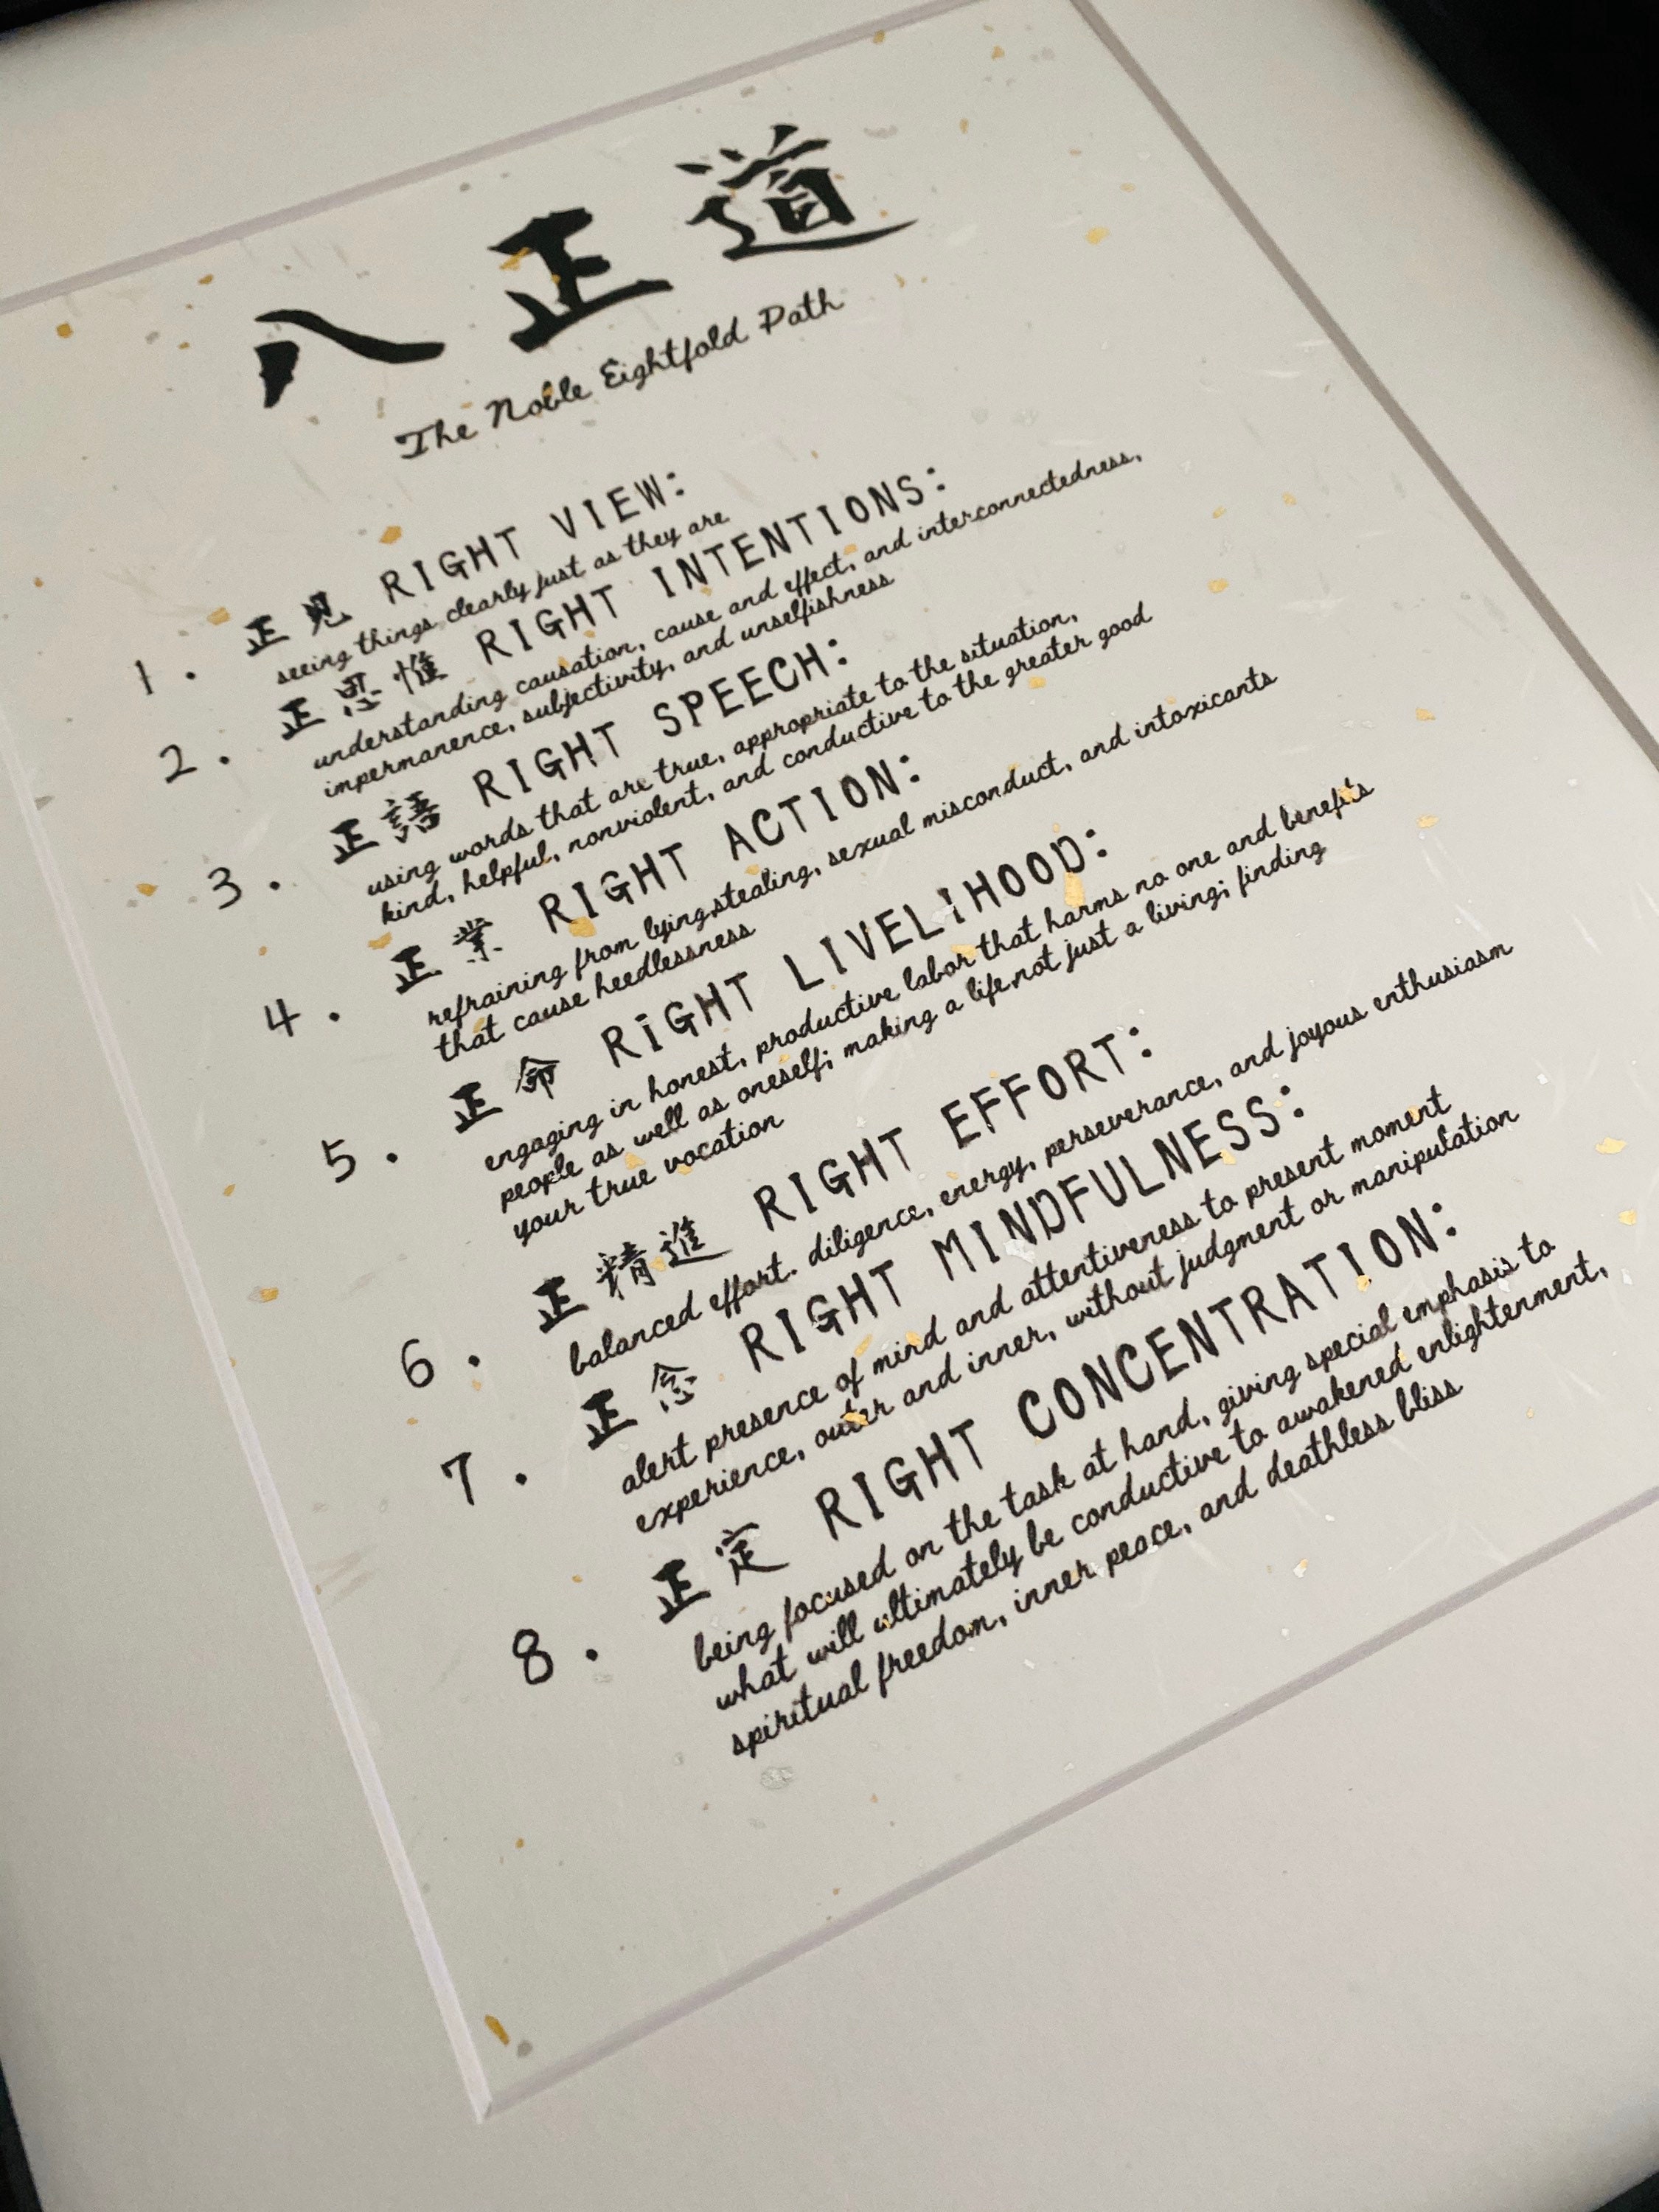 八正道
The Noble Eightfold Path
1. 正見 RIGHT VIEW:
seeing things clearly just as they are
2. 正思惟 RIGHT INTENTIONS:
understanding causation, cause and effect, and interconnectedness,
impermanence, subjectivity, and unselfishness
3. 正語 RIGHT SPEECH:
using words that are true, appropriate to the situation,
kind, helpful, nonviolent, and conductive to the greater good
4. 正業 RIGHT ACTION:
refraining from lying,stealing, sexual misconduct, and intoxicants
that cause heedlessness
5. 正命 RIGHT LIVELIHOOD:
engaging in honest, productive labor that harms no one and benefits
people as well as oneself; making a life,not just a living; finding
your true vocation
6. 正精進 RIGHT EFFORT:
balanced effort. diligence, energy, perseverance, and joyous enthusiasm
7. 正念 RIGHT MINDFULNESS:
alert presence of mind and attentiveness to present moment
experience, outer and inner, without judgment or manipulation
8. 正定 RIGHT CONCENTRATION:
being focused on the task at hand, giving special emphasis to
what will ultimately be conductive to awakened enlightenment,
spiritual freedom, inner peace, and deathless bliss